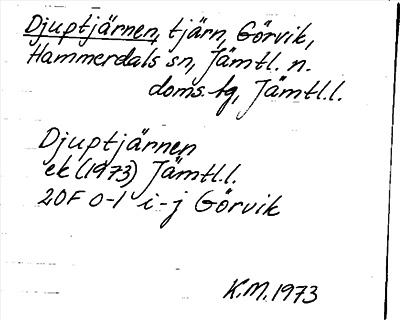 Djuptjärnen, tjärn, Görvik,
Hammerdals sn, Jämtl. n.
doms. hg, Jämtl.l.
Djuptjärnen
ek (1973) Jämtl.l.
20F 0-1 i-j Görvik
K.M. 1973